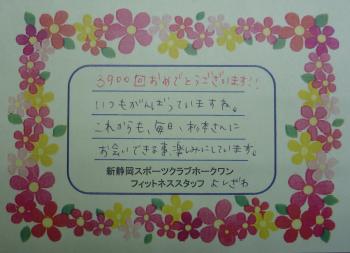 3900回おめでとうございます!!
いつもがんばっていますね。
これからも、毎日、杉本さんに
お会いできる事、楽しみにしています。
新静岡スポーツクラブホークワン
フィットネススタッフ よしざわ